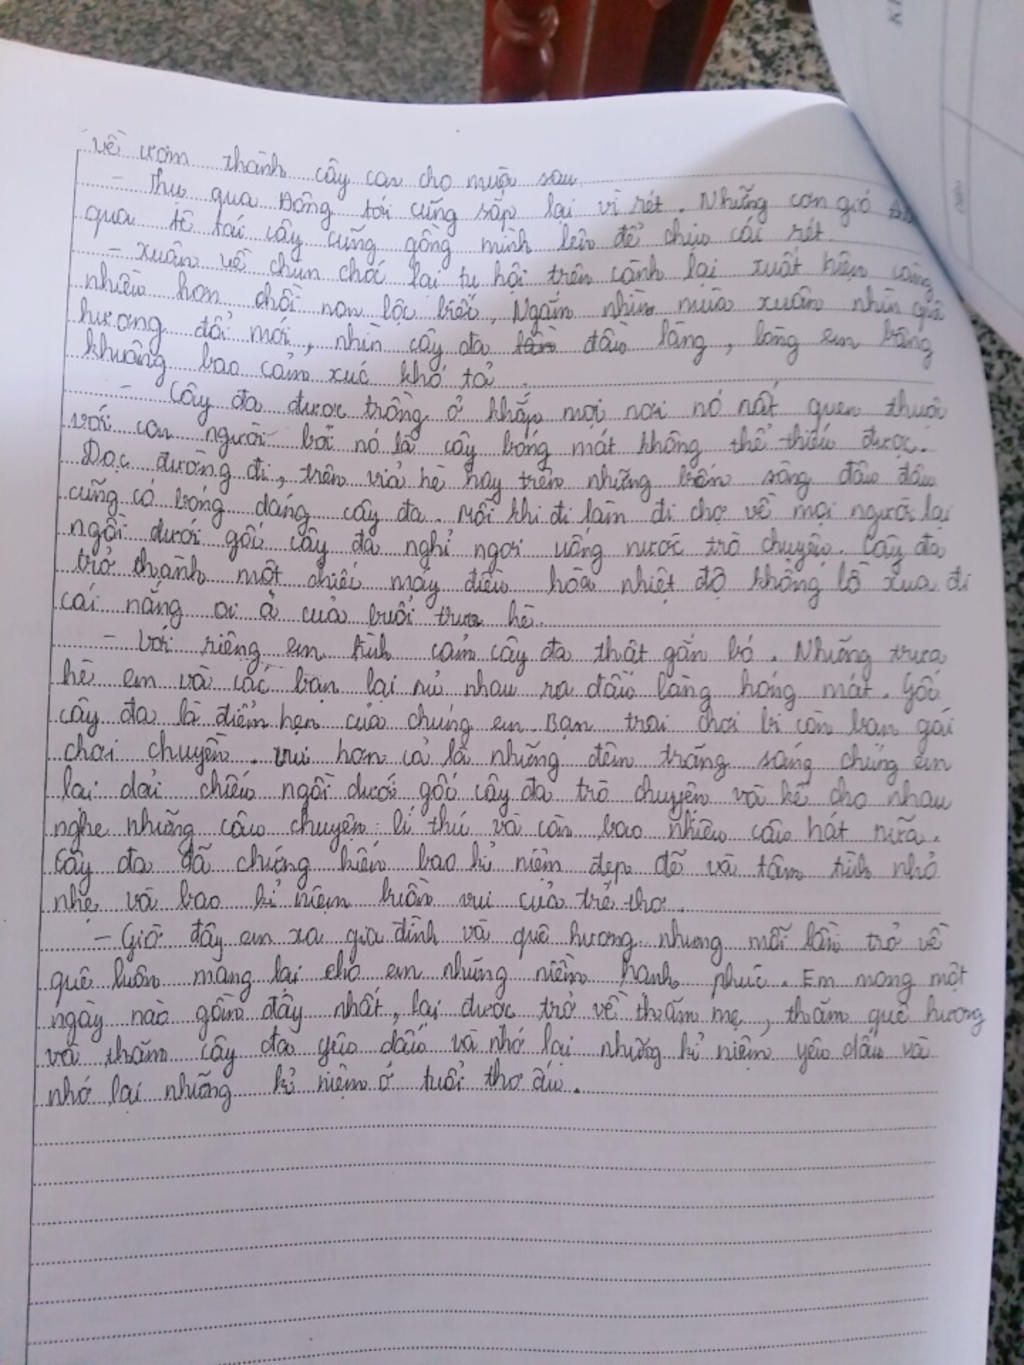 về ươm thành cây con cho mùa sau
- Thu qua Đông tới cũng sắp lại vì rét. Những cơn gió
qua tê tái cây cũng gồng mình lên để chịu cái rét.
- xuân về chim chóc lại tụ hội trên cành lại xuất hiện càng
nhiều hơn chồi non lộc biếc. Ngắm nhìn mùa xuân nhìn quê
hương đổi mới, nhìn cây đa đầu làng, lòng em bâng
khuâng bao cảm xúc khó tả.
- Cây đa được trồng ở khắp mọi nơi nó rất quen thuộc
với con người bởi nó là cây bóng mát không thể thiếu được.
Dọc đường đi, trên vỉa hè hay trên những bến sông đâu đâu
cũng có bóng dáng cây đa. Mỗi khi đi làm đi chợ về mọi người lại
ngồi dưới gốc cây đa nghỉ ngơi uống nước trò chuyện. Cây đa
trở thành một chiếc máy điều hòa nhiệt độ khổng lồ xua đi
cái nắng oi ả của buổi trưa hè.
- Với riêng em tình cảm cây đa thật gắn bó. Những trưa
hè em và các bạn lại rủ nhau ra đầu làng hóng mát. Gốc
cây đa là điểm hẹn của chúng em. Bạn trai chơi bi còn bạn gái
chơi chuyền. vui hơn cả là những đêm trăng sáng chúng em
lại dải chiếu ngồi dưới gốc cây đa trò chuyện và kể cho nhau
nghe những câu chuyện lí thú và còn bao nhiêu câu hát nữa.
Cây đa đã chứng kiến bao kỉ niệm đẹp đẽ và tâm tình nhỏ
nhẹ và bao kỉ niệm buồn vui của trẻ thơ.
- Giờ đây em xa gia đình và quê hương nhưng mỗi lần trở về
quê luôn mang lại cho em những niềm hạnh phúc. Em mong một
ngày nào gần đây nhất, lại được trở về thăm mẹ, thăm quê hương
và thăm cây đa yêu dấu và nhớ lại những kỉ niệm yêu dấu và
nhớ lại những kỉ niệm ở tuổi thơ ấu.